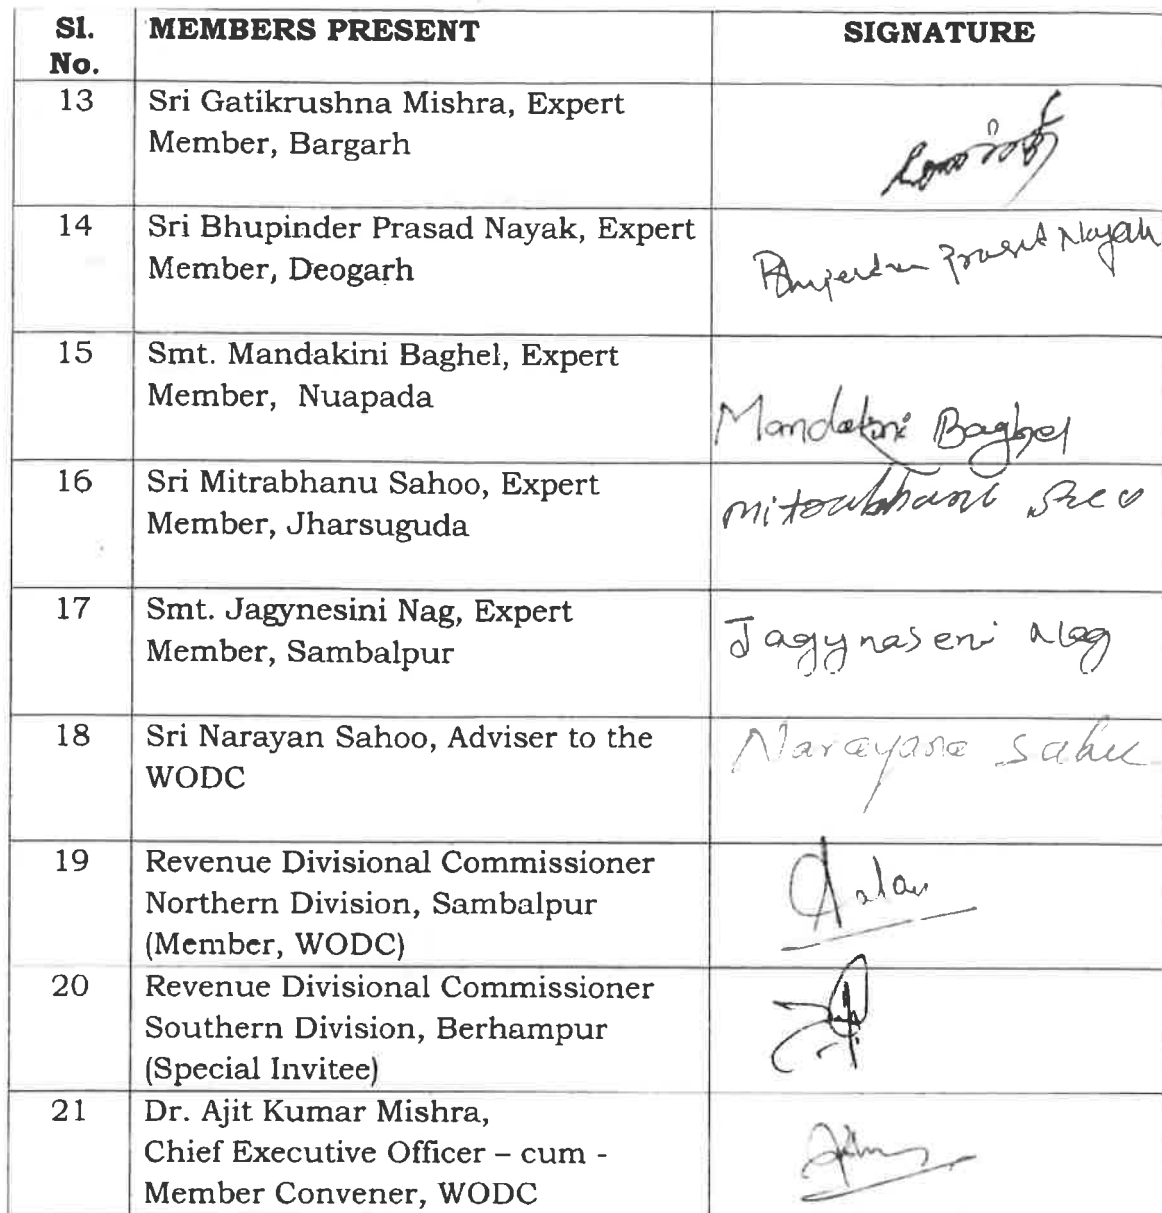 Sl. No.
MEMBERS PRESENT
SIGNATURE
13
Sri Gatikrushna Mishra, Expert
Member, Bargarh
14
Sri Bhupinder Prasad Nayak, Expert
Member, Deogarh
Nayak
15
Smt. Mandakini Baghel, Expert
Member, Nuapada
Mandakini Baghel
16
Sri Mitrabhanu Sahoo, Expert
Member, Jharsuguda
17
Smt. Jagynesini Nag, Expert
Member, Sambalpur
Jagynaseni Nag
18
Sri Narayan Sahoo, Adviser to the
WODC
Narayana Sahu
19
Revenue Divisional Commissioner
Northern Division, Sambalpur
(Member, WODC)
20
Revenue Divisional Commissioner
Southern Division, Berhampur
(Special Invitee)
21
Dr. Ajit Kumar Mishra,
Chief Executive Officer – cum -
Member Convener, WODC